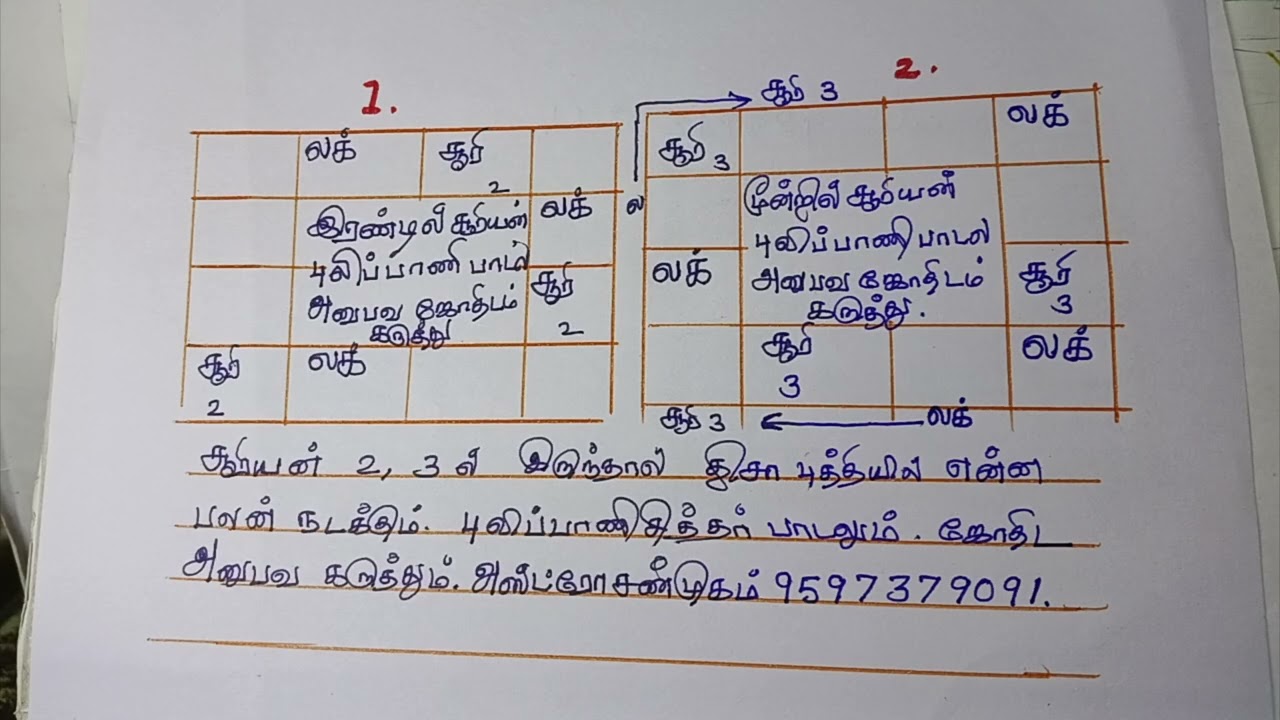 1.
லக் சூரி
2
லக்
இரண்டில் சூரியன்
புலிப்பாணி பாடல்
அனுபவ ஜோதிடம்
கருத்து
சூரி
2
சூரி
2
லக்
2.
சூரி 3
சூரி 3
லக்
ல
மூன்றில் சூரியன்
புலிப்பாணி பாடல்
அனுபவ ஜோதிடம்
கருத்து.
லக்
சூரி
3
சூரி
3
லக்
சூரி 3
லக்
சூரியன் 2, 3 ல் இருந்தால் திசா புத்தியில் என்ன
பலன் நடக்கும். புலிப்பாணி சித்தர் பாடலும். ஜோதிட
அனுபவ கருத்தும். அஸ்ட்ரோ சண்முகம் 9597379091.